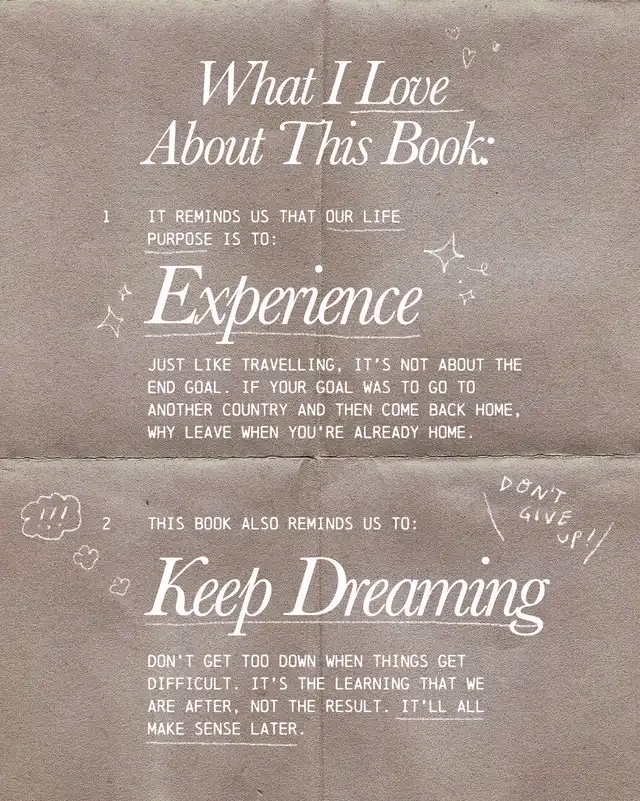 What I Love
About This Book:
1 IT REMINDS US THAT OUR LIFE
PURPOSE IS TO:
Experience
JUST LIKE TRAVELLING, IT'S NOT ABOUT THE
END GOAL. IF YOUR GOAL WAS TO GO TO
ANOTHER COUNTRY AND THEN COME BACK HOME,
WHY LEAVE WHEN YOU'RE ALREADY HOME.
!!!
DON'T
GIVE
UP!
2 THIS BOOK ALSO REMINDS US TO:
Keep Dreaming
DON'T GET TOO DOWN WHEN THINGS GET
DIFFICULT. IT'S THE LEARNING THAT WE
ARE AFTER, NOT THE RESULT. IT'LL ALL
MAKE SENSE LATER.